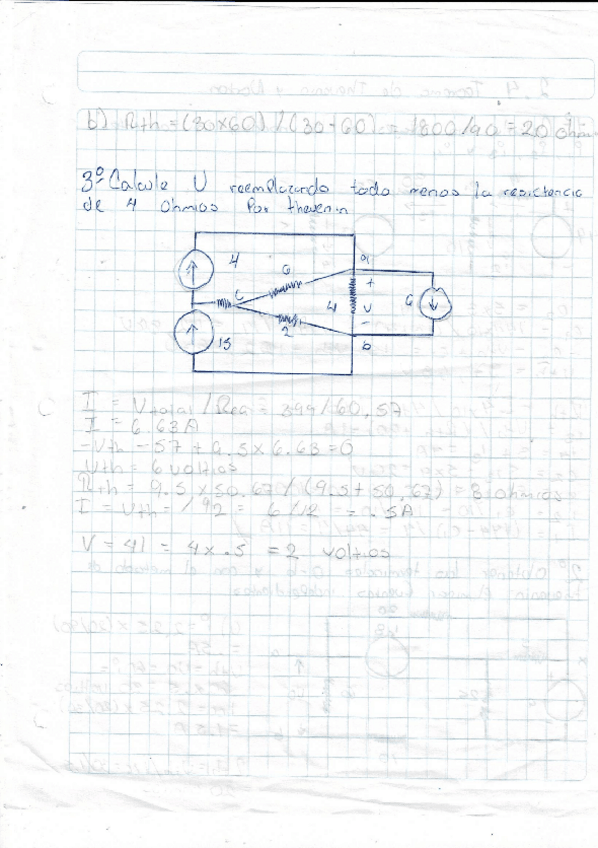 b) Rth = (30x60) / (30+60) = 1800/90 = 20 ohm
3º Calcule U reemplazando todo menos la resistencia
de 4 Ohmios Por thevenin
4
6
a
+
6
4
V
6
-
2
15
b
I = Vtotal / Rea = 399/60,57
I = 6.63A
-Vth -57 + 9.5 x 6.63 = 0
Vth = 6 voltios
Rth = 9.5 x 50.67 / (9.5 + 50.67) = 8 ohmios
V = 4I = 4 x .5 = 2 voltios